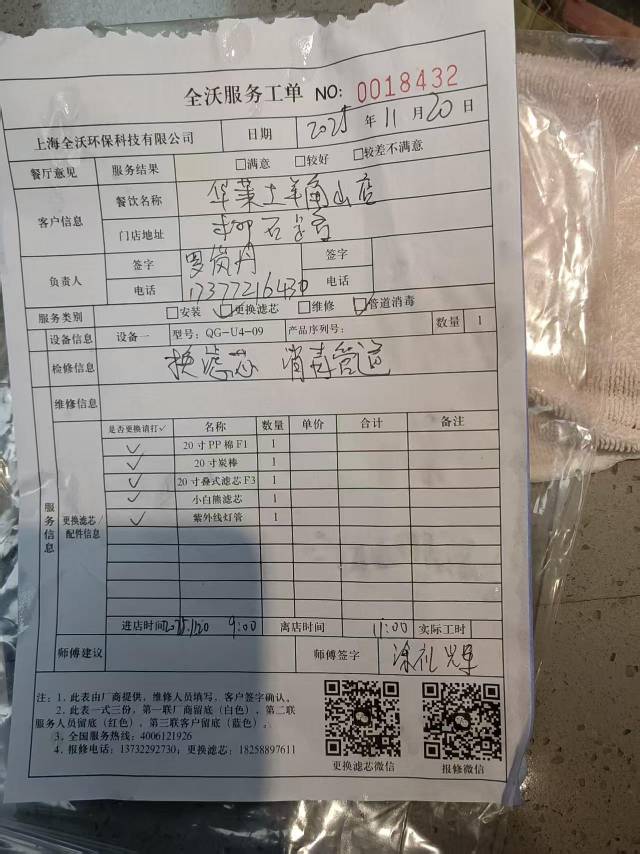 全沃服务工单 NO: 0018432
上海全沃环保科技有限公司 日期 2025 年 11 月 20 日
餐厅意见 服务结果 □满意 □较好 □较差不满意
客户信息 餐饮名称 华莱士羊角山店
门店地址 柳石
负责人 签字 罗岚丹 签字
电话 17377216430 电话
服务类别 □安装 ☑更换滤芯 □维修 ☑管道消毒
设备信息 设备一 型号: QG-U4-09 产品序列号: 数量 1
检修信息 换滤芯 消毒管道
维修信息
服务信息
更换滤芯/配件信息
是否更换请打✓ 名称 数量 单价 合计 备注
✓ 20寸PP棉F1 1
✓ 20寸炭棒 1
✓ 20寸叠式滤芯F3 1
✓ 小白熊滤芯 1
✓ 紫外线灯管 1
进店时间 2025.11.20 9:00 离店时间 11:00 实际工时
师傅建议 师傅签字 涂礼
注: 1. 此表由厂商提供, 维修人员填写, 客户签字确认。
2. 此表一式三份, 第一联厂商留底(白色), 第二联
服务人员留底(红色), 第三联客户留底(蓝色)。
3. 全国服务热线: 4006121926
4. 报修电话: 13732292730; 更换滤芯: 18258897611
更换滤芯微信 报修微信